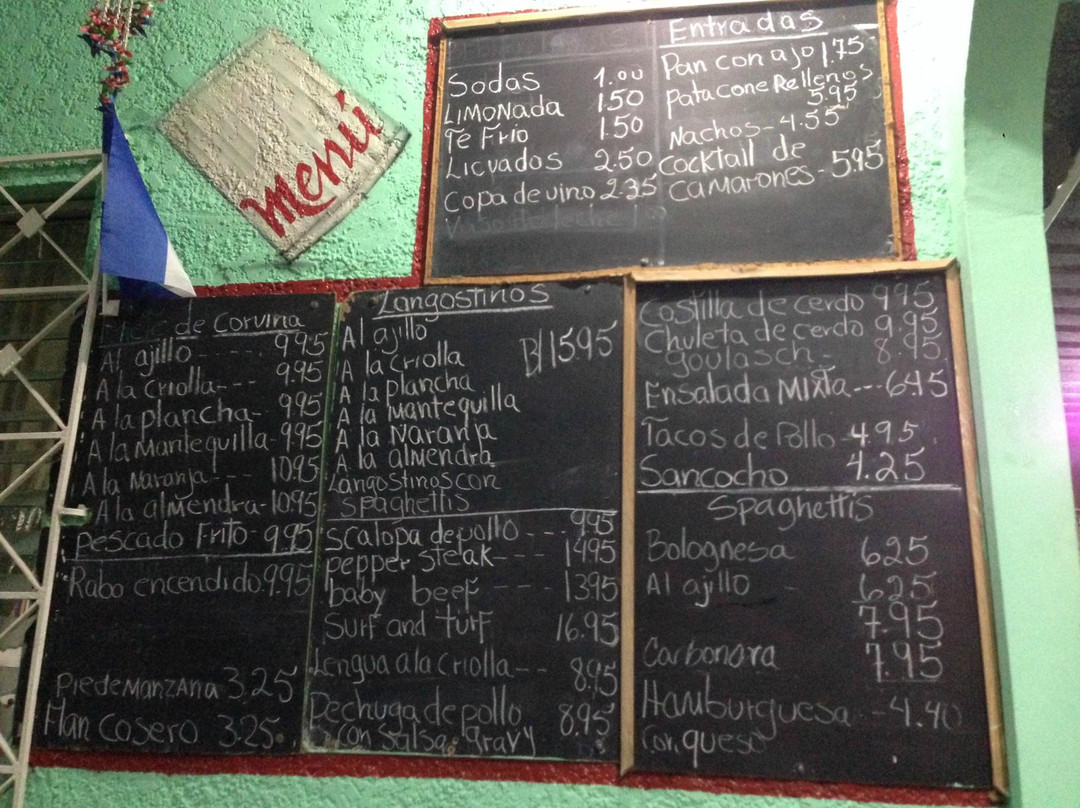 menú
Sodas 1.00
LIMONada 1.50
Té Frío 1.50
Licuados 2.50
Copa de vino 2.35
Entradas
Pan con ajo 1.75
Patacone Rellenos
5.95
Nachos - 4.55
Cocktail de
Camarones - 5.95
de Corvina
Al ajillo ------ 9.95
A la Criolla --- 9.95
A la plancha - 9.95
A la Mantequilla - 9.95
A la Naranja --- 10.95
A la almendra - 10.95
Pescado Frito - 9.95
Rabo encendido 9.95
Pie de Manzana 3.25
Flan Casero 3.25
Langostinos
Al ajillo
B/15.95
A la Criolla
A la plancha
A la Mantequilla
A la Naranja
A la almendra
Langostinos con
Spaghettis
Scalopa de pollo --- 9.95
pepper steak --- 14.95
baby beef --- 13.95
Surf and turf 16.95
Lengua a la Criolla -- 8.95
Pechuga de pollo 8.95
con Salsa gravy
Costilla de cerdo 9.95
Chuleta de cerdo 9.95
goulasch - 8.95
Ensalada Mixta --- 6.45
Tacos de Pollo - 4.95
Sancocho 4.25
Spaghettis
Bolognesa 6.25
Al ajillo - 6.25
7.95
Carbonara 7.95
Hamburguesa -- 4.40
Con queso